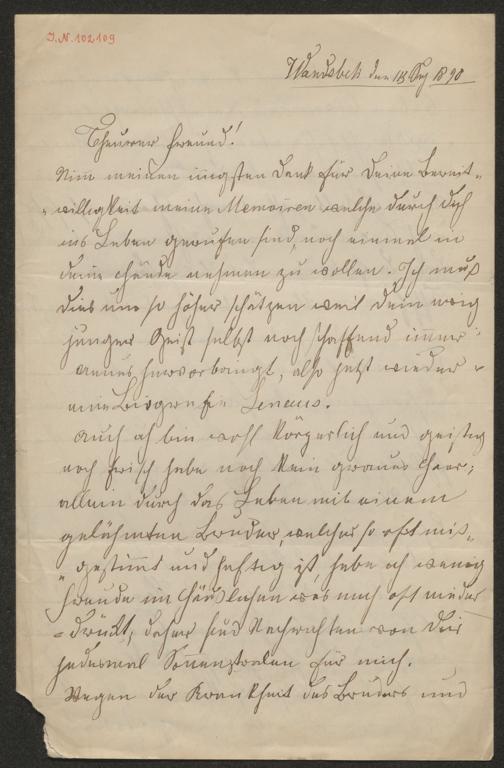 I.N. 102109
Wandsbek den 18 Aug 1890
Theurer Freund!
Nim meinen innigsten Dank für Deine Bereit-
-willigkeit meine Memoiren welche durch Dich
ins Leben gerufen sind, noch einmal in
Deine Hände nehmen zu wollen. Ich muß
dies um so höher schätzen weil Dein ewig
junger Geist selbst noch schaffend immer
neues hervorbringt, also jetzt wieder
eine Biografie Lenaus.
Auch ich bin wohl körperlich und geistig
noch frisch habe noch kein graues Haar;
allein durch das Leben mit einem
gelähmten Bruder, welcher so oft mis-
-gestimt und heftig ist, habe ich wenig
Freude im Häuslichen was mich oft nieder
-drückt, daher sind Nachrichten von Dir
jedesmal Sonnenstralen für mich.
Wegen der Krankheit des Bruders und